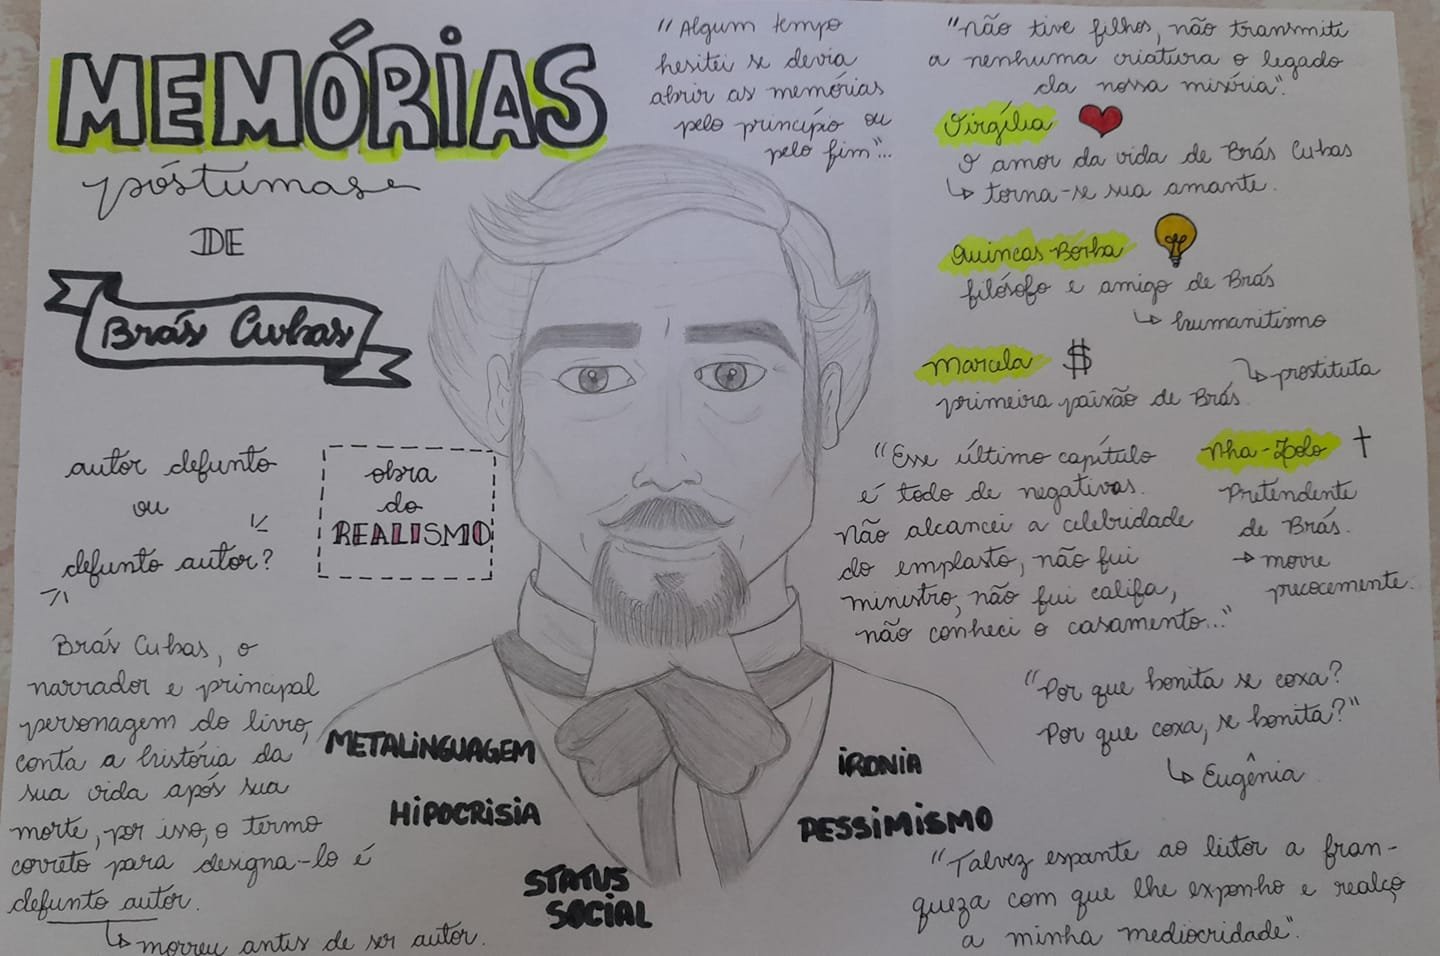 MEMÓRIAS
póstumas
DE
Brás Cubas
"Algum tempo
hesitei se devia
abrir as memórias
pelo princípio ou
pelo fim"...
"não tive filhos, não transmiti
a nenhuma criatura o legado
da nossa miséria".
Virgília
O amor da vida de Brás Cubas
↳ torna-se sua amante.
Quincas Borba
filósofo e amigo de Brás
↳ humanitismo
Marcela $
↳ prostituta
primeira paixão de Brás
autor defunto
ou
defunto autor?
obra
do
REALISMO
"Esse último capítulo
é todo de negativas.
Não alcancei a celebridade
do emplasto, não fui
ministro, não fui califa,
não conheci o casamento..."
Nha-Lolo †
Pretendente
de Brás.
→ morre
precocemente.
Brás Cubas, o
narrador e principal
personagem do livro,
conta a história da
sua vida após sua
morte, por isso, o termo
correto para designa-lo é
defunto autor.
↳ morreu antes de ser autor.
METALINGUAGEM
HIPOCRISIA
STATUS
SOCIAL
IRONIA
PESSIMISMO
"Por que bonita se coxa?
Por que coxa, se bonita?"
↳ Eugênia
"Talvez espante ao leitor a fran-
queza com que lhe exponho e realço
a minha mediocridade".